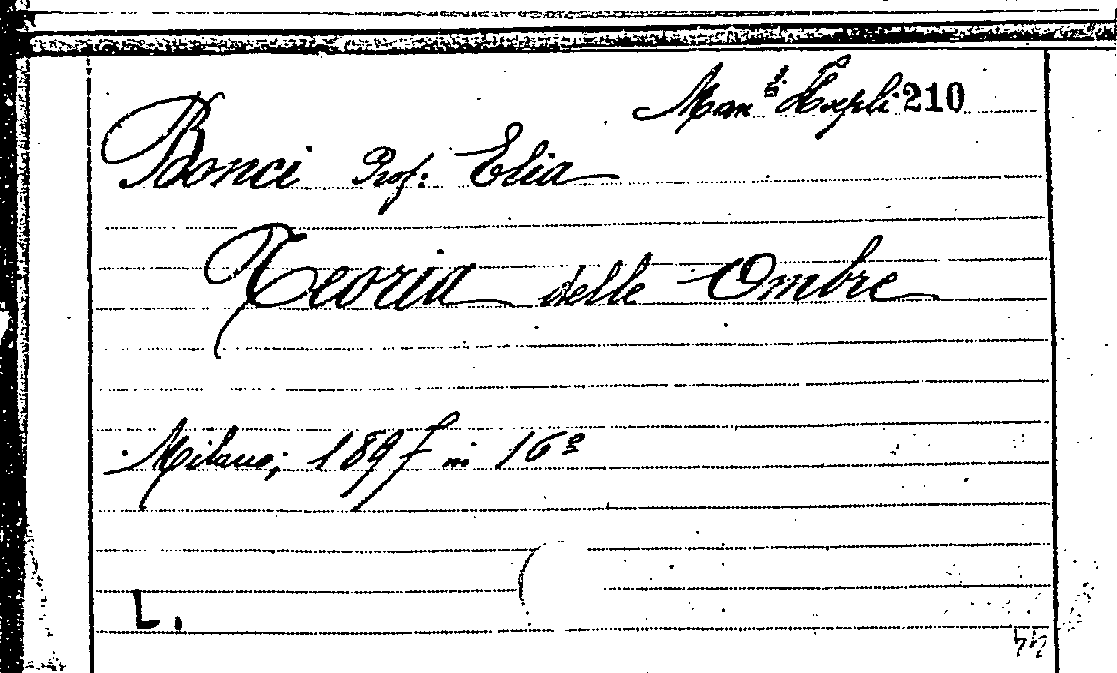 Man.li Hoepli 210
Bonci Prof: Elia
Teoria delle Ombre
Milano, 1897 in 16º
L.